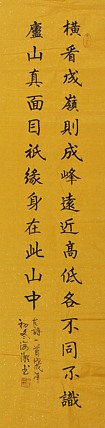 橫看成嶺則成峰遠近高低各不同不識
廬山真面目祇緣身在此山中
古詩一首